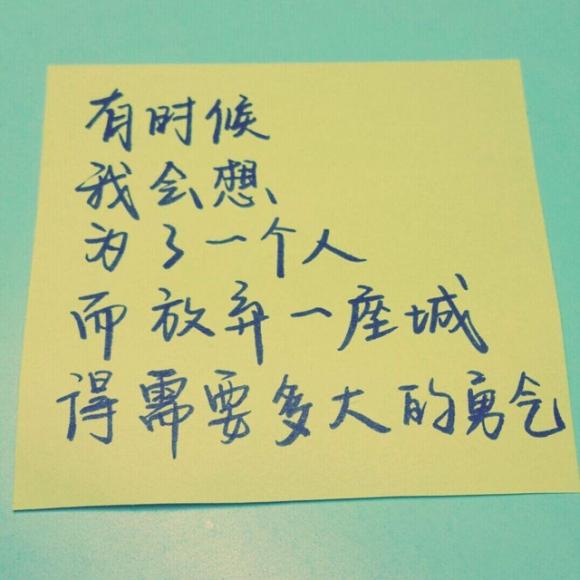 有时候
我会想
为了一个人
而放弃一座城
得需要多大的勇气